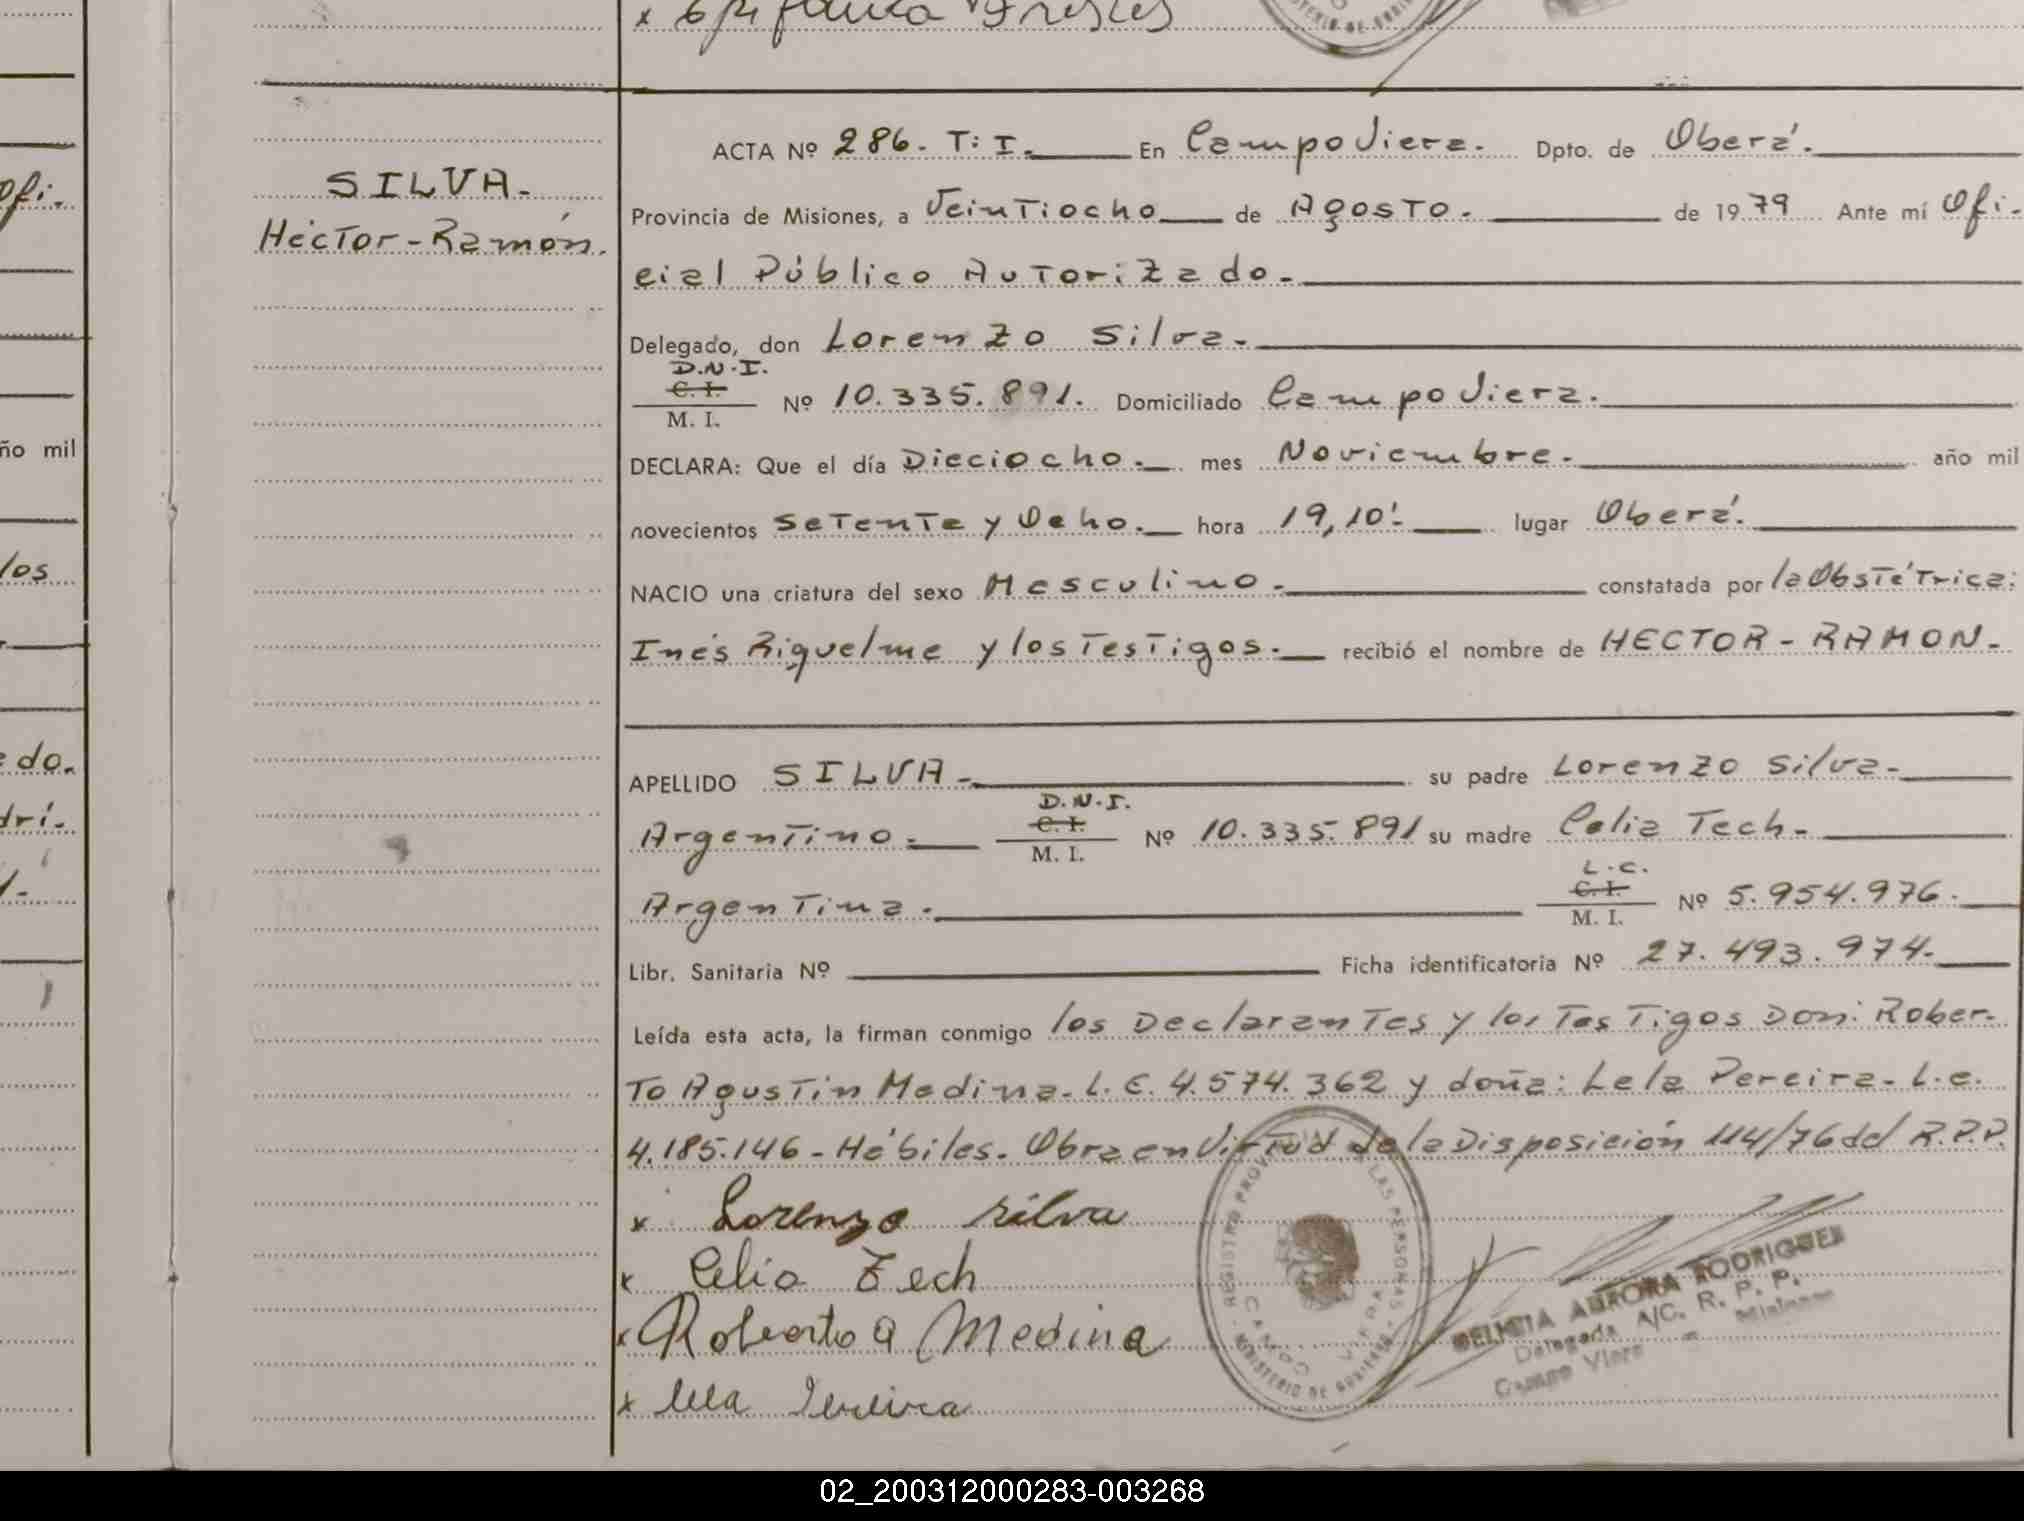 ofi.
ño mil
los
do.
dri.
SILVA.
Héctor-Ramón.
ACTA Nº 286. T: I. En Campo Viera. Dpto. de Oberá.
Provincia de Misiones, a Veintiocho de Agosto. de 1979 Ante mí Ofi-
cial Público Autorizado.
Delegado, don Lorenzo Silva.
D.N.I.
C. I.
M. I. Nº 10.335.891. Domiciliado Campo Viera.
DECLARA: Que el día Dieciocho. mes Noviembre. año mil
novecientos Setenta y Ocho. hora 19,10'. lugar Oberá.
NACIO una criatura del sexo Masculino. constatada por la Obstétrica:
Inés Riquelme y los Testigos. recibió el nombre de HECTOR-RAMON.
APELLIDO SILVA. su padre Lorenzo Silva.
D.N.I.
Argentino. C. I. M. I. Nº 10.335.891 su madre Celia Tech.
L.C.
Argentina. C. I. M. I. Nº 5.954.976.
Libr. Sanitaria Nº Ficha identificatoria Nº 27.493.974.
Leída esta acta, la firman conmigo los Declarantes y los Testigos Don: Rober-
to Agustín Medina. L.E. 4.574.362 y doña: Lela Pereira. L.C.
4.185.146 - Hábiles. Obra en Virtud de la Disposición 114/76 del R.P.P.
x Lorenzo Silva
x Celia Tech
x Roberto A Medina
x Lela Pereira
REGISTRO PROVINCIAL DE LAS PERSONAS
CAMPO VIERA
MINISTERIO DE GOBIERNO
DELICIA AURORA RODRIGUEZ
Delegada A/C. R. P. P.
Campo Viera - Misiones
02_200312000283-003268